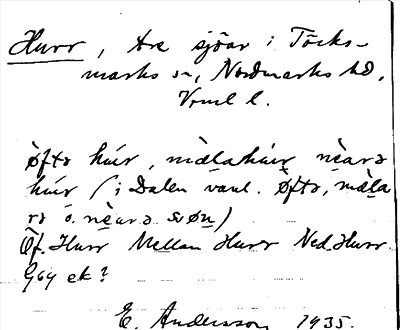 Hurr, tre sjöar i Töcks-
marks sn, Nordmarks hd,
Vrml l.
òftə húr, mæ̀lahúr nèarə
húr (i Dalen vanl. Òftə, mæ̀la
rə o. nèarə søn)
Öf. Hurr Mellan Hurr Ned. Hurr
G69 ek?
E. Andersson 1935.